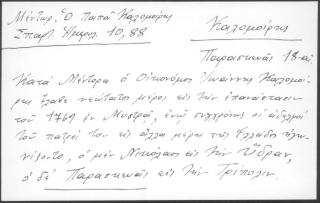 Μέντωρ, Ὁ Παπα-Καλομοίρης
Σπαρτ. Ἡμερολ. 10, 88
Καλομοίρης
Παρασκευᾶς 18-αι.
Κατὰ Μέντορα ὁ Οἰκονόμος Ἰωάννης Καλομοί-
ρης ἔλαβε νεώτατος μέρος εἰς τὴν ἐπανάστασιν
τοῦ 1769 ἐν Μυστρᾷ, ἐνῷ συγχρόνως οἱ ἀδελφοὶ
τοῦ πατρός του εἰς ἄλλα μέρη τῆς Ἑλλάδος ἠγω-
νίζοντο, ὁ μὲν Νικόλαος εἰς τὴν Ὕδραν,
ὁ δὲ Παρασκευᾶς εἰς τὴν Τρίπολιν.